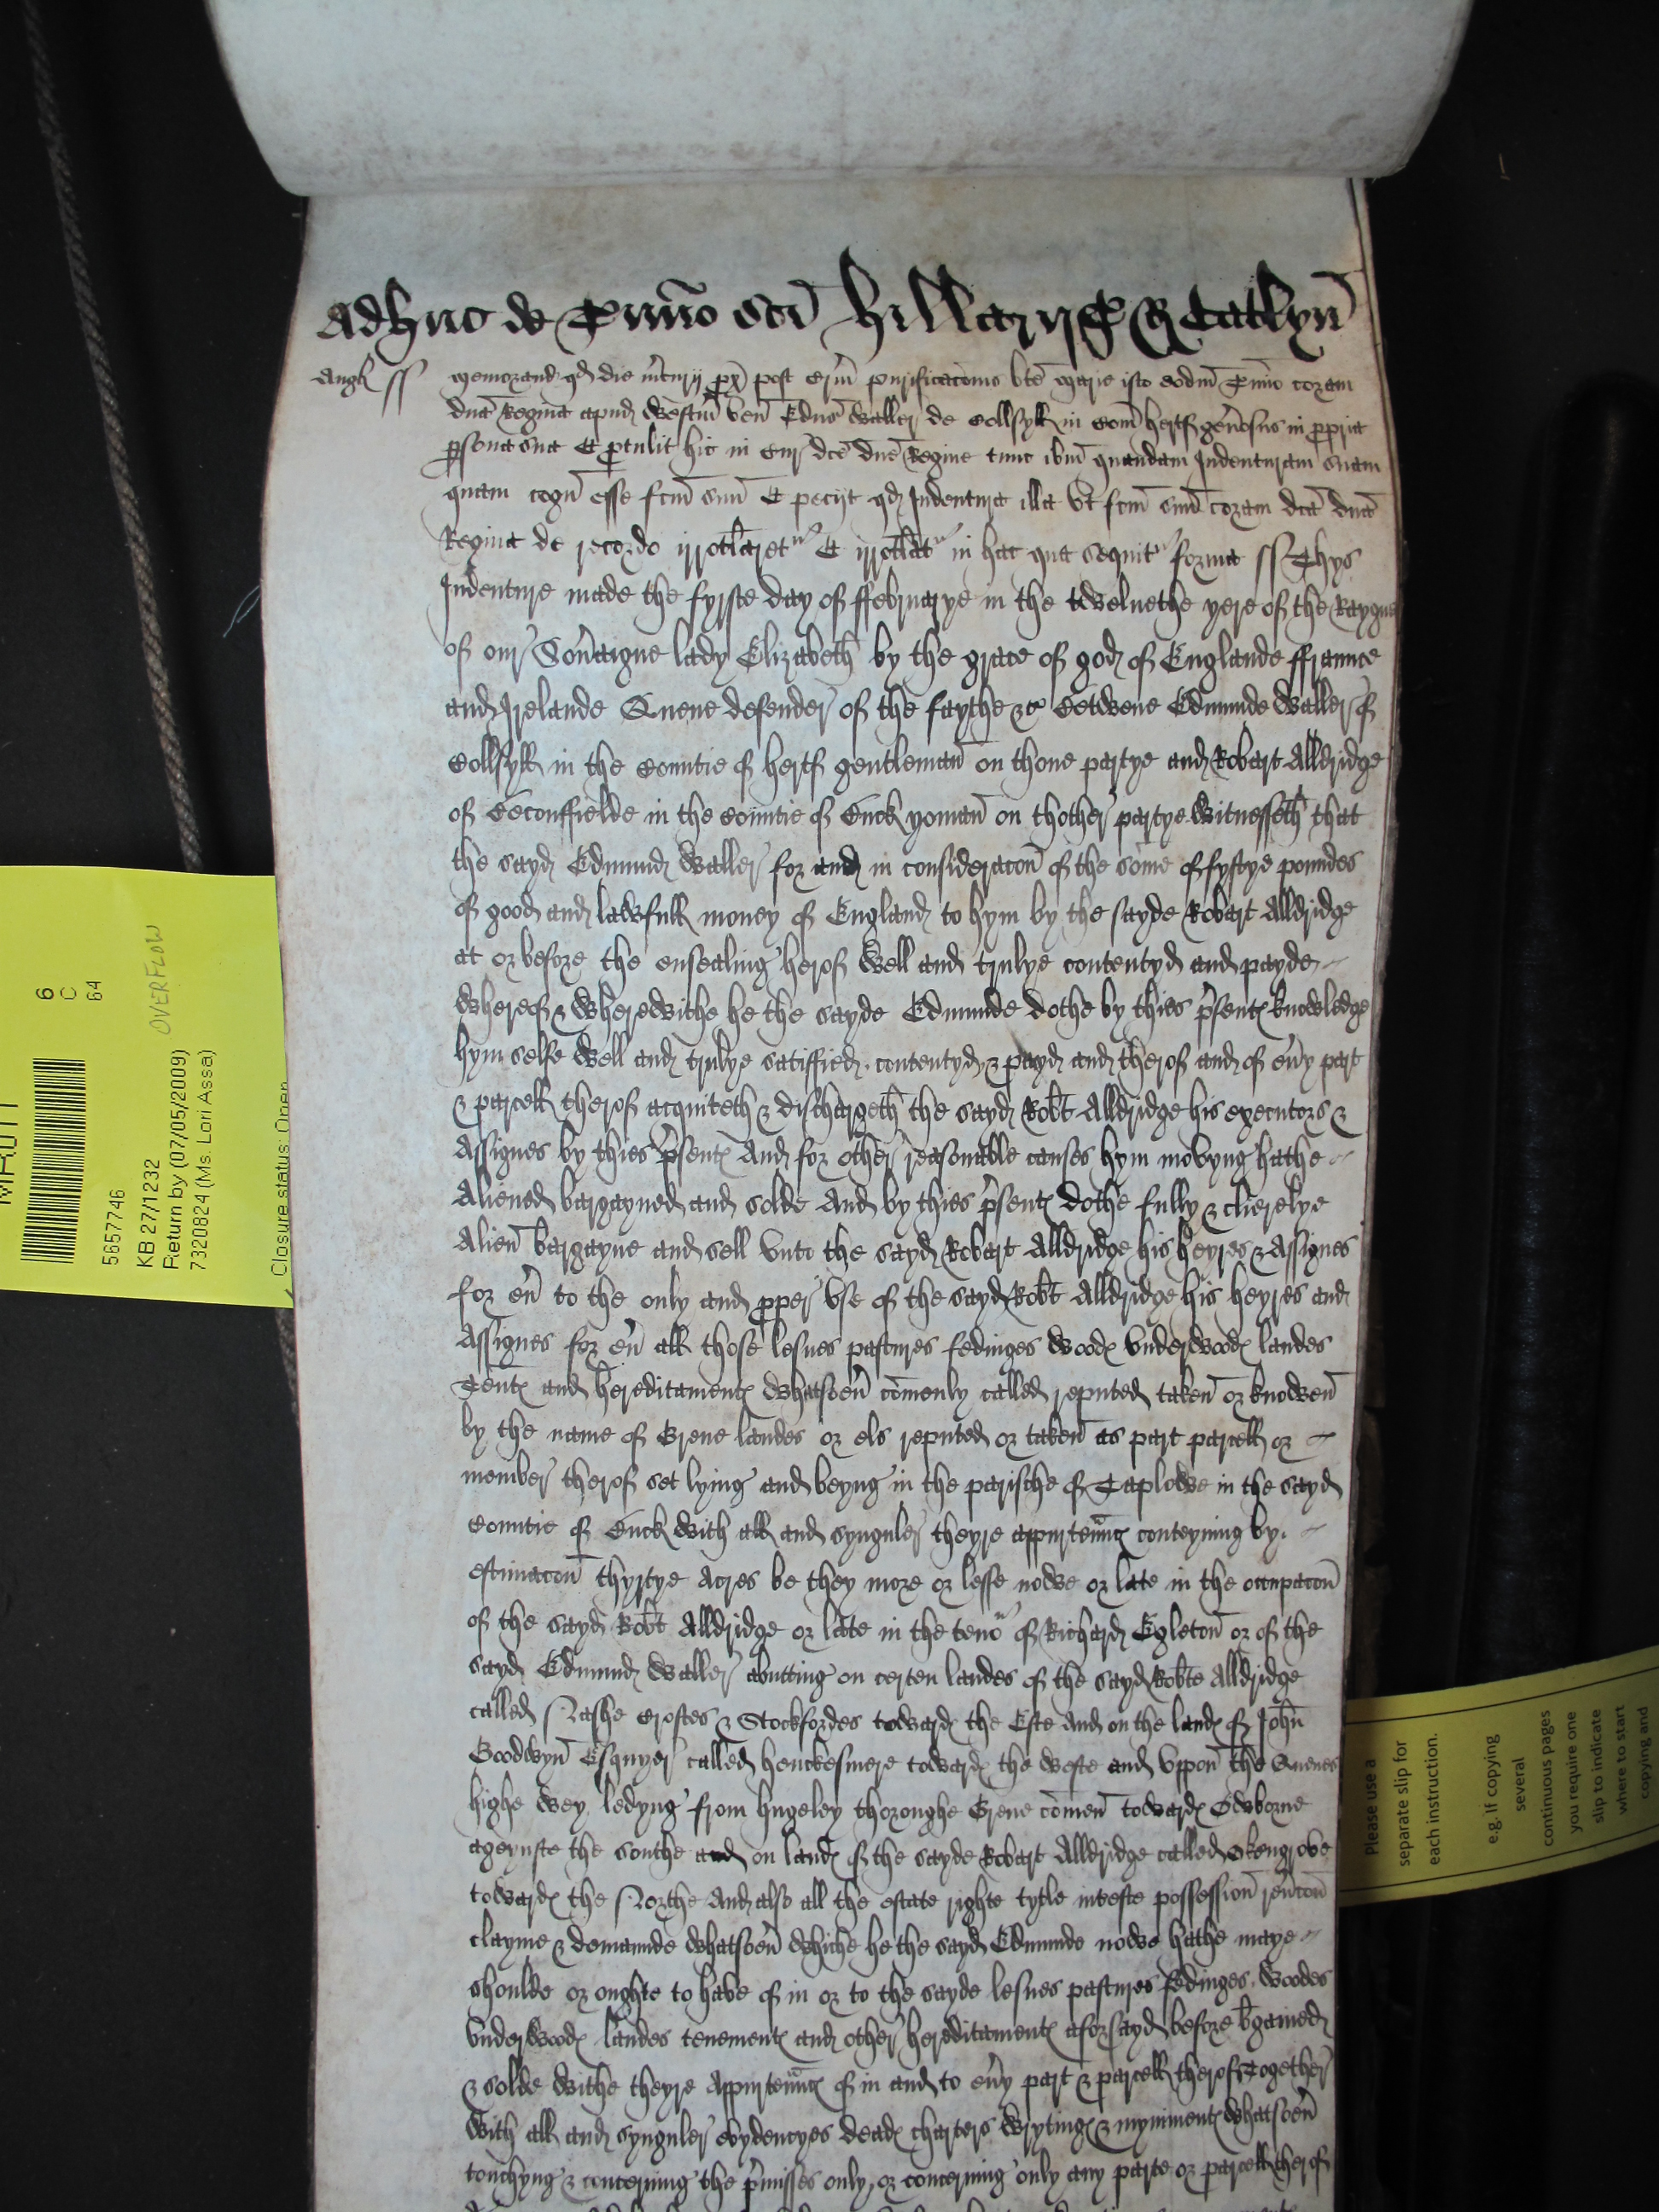 Adhuc de Termino sci Hillarij R Catlyn
Angl ss Memorand qd die mercurij px post crm purificacionis bte Marie isto eodm Termio coram
dna Regina apud Westm ven Edmus Waller de Collsyll in Com Hertf generosus in propria
psona sua Et protulit hic in Cur dce dne Regine tunc ibm quandam Indenturam suam
quam cogn esse fcm suu Et peciit qd Indentura illa vt fcm suu coram dca dna
Regina de recordo irrotlaretur Et irrotlatur in hac qua sequitur forma ss Thys
Indenture made the fyrste day of ffebruarye in the twelvethe yere of the Raygne
of our Soveraigne lady Elizabeth by the grace of god of Englande ffraunce
and Irelande Quene defender of the faythe &c Betwene Edmunde Waller of
Collsyll in the Countie of Hertf gentleman on thone partye and Robart Alldridge
of Beconffielde in the Countie of Buck yoman on thother partye Witnesseth that
the sayd Edmund Waller for and in consideracon of the some of fyftye poundes
of good and lawfull money of England to hym by the sayde Robart Alldridge
at or before the ensealing herof well and trulye contentyd and payde
Whereof & wherewithe he the sayde Edmunde dothe by thies psentes knowledge
hym selfe well and trulye satiffied contentyd & payd and therof and of evy part
& parcell therof acquiteth & dischargeth the sayd Robt Alldridge his executors &
Assignes by thies psentes And for other reasonable causes hym movyng hathe
Aliened bargayned and solde And by thies psentes dothe fully & clierelye
Alien bargayne and sell vnto the sayd Robart Alldridge his heyres & Assignes
for ev to the only and pper vse of the sayd Robt Alldridge his heyres and
Assignes for ev all those lesues pastures fedinges woodes vnderwoodes landes
Tentes and hereditamentes whatsoev comenly called reputed taken or knowen
by the name of Grene landes or els reputed or taken as part parcell or
member therof set lying and beyng in the parische of Taplowe in the sayd
Countie of Buck with all and synguler theyre appurtenncs conteyning by
estimacon thyrtye Acres be they more or lesse nowe or late in the occupacon
of the sayd Robt Alldridge or late in the tenour of Richard Egleton or of the
sayd Edmund Waller abutting on certen landes of the sayd Robte Alldridge
called Nashe croftes & Stockfordes towardes the Este And on the landes of John
Goodwyn Esquyer called henckesmere towardes the weste and vppon the Quenes
highe wey ledyng from hugeley thoroughe Grene comen towardes Owborne
ageynste the southe and on landes of the sayde Robart Alldridge called okengrove
towardes the Northe And also all the estate righte tytle intreste possession revcon
clayme & demaunde whatsoev whiche he the sayd Edmunde nowe hathe maye
shoulde or oughte to have of in or to the sayde lesues pastures fedinges woodes
vnderwoodes landes tenementes and other hereditamentes aforsayd before bgained
& solde withe theyre Appurtenncs of in and to evy part & parcell therof Together
with all and synguler evydencyes deades charters wrytinges & mynimentes whatsoev
touchyng & concerning the pmisses only, or concerning only any parte or parcell therof
OVERFLOW
6
C
64
5657746
KB 27/1232
Return by (07/05/2009)
7320824 (Ms. Lori Assa)
Closure status: Open
Please use a
separate slip for
each instruction.
e.g. If copying
several
continuous pages
you require one
slip to indicate
where to start
copying and